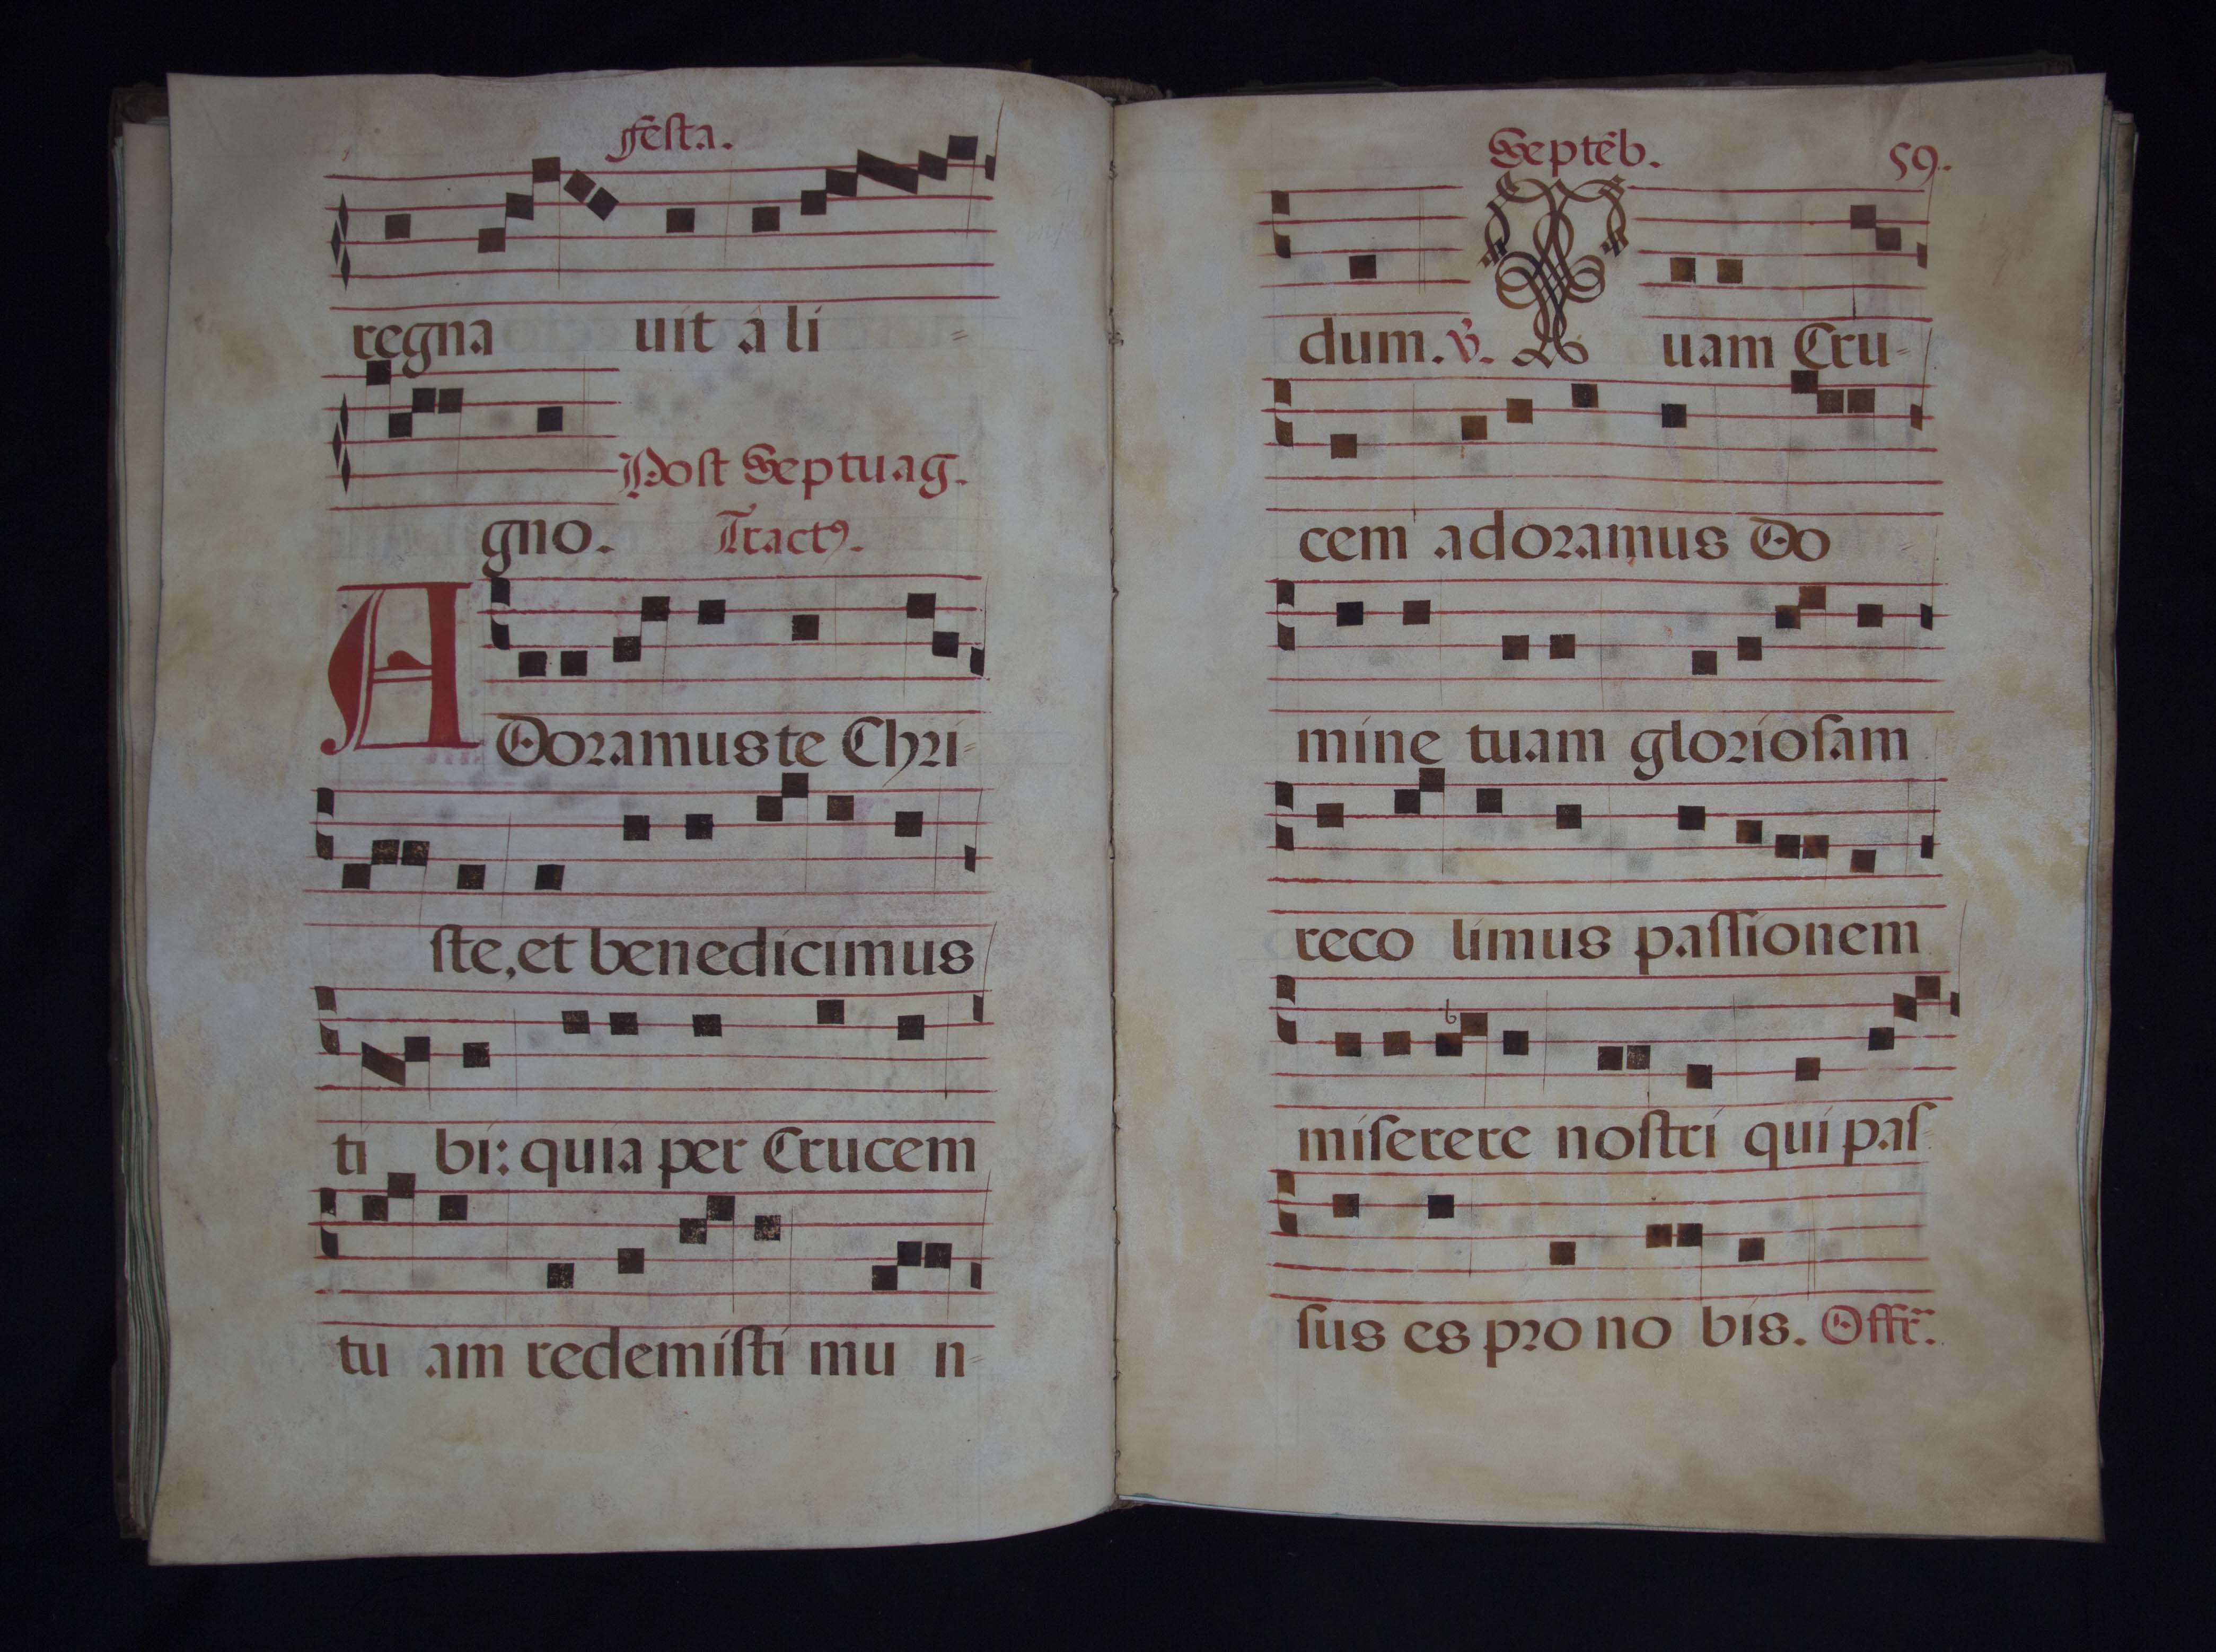 festa.
regna uit â li=
Post Septuag.
gno. Tractꝰ.
ADoramus te Chri=
ste, et benedicimus
ti bi: quia per Crucem
tu am redemisti mu n=
Septẽb. 59.
dum. ℣. Quam Cru=
cem adoramus Do
mine tuam gloriosam
reco limus passionem
miserere nostri qui pas
sus es pro no bis. Offr̃.